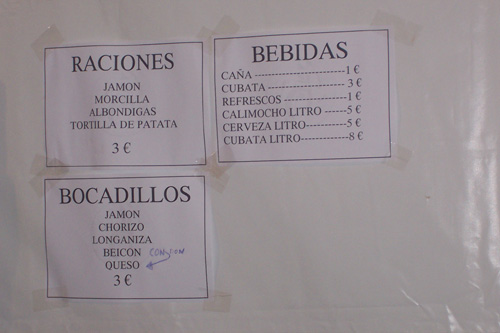 RACIONES
JAMON
MORCILLA
ALBONDIGAS
TORTILLA DE PATATA
3 €
BEBIDAS
CAÑA --------------------------1 €
CUBATA ---------------------- 3 €
REFRESCOS ------------------1 €
CALIMOCHO LITRO ------5 €
CERVEZA LITRO------------5 €
CUBATA LITRO--------------8 €
BOCADILLOS
JAMON
CHORIZO
LONGANIZA
BEICON
QUESO
3 €